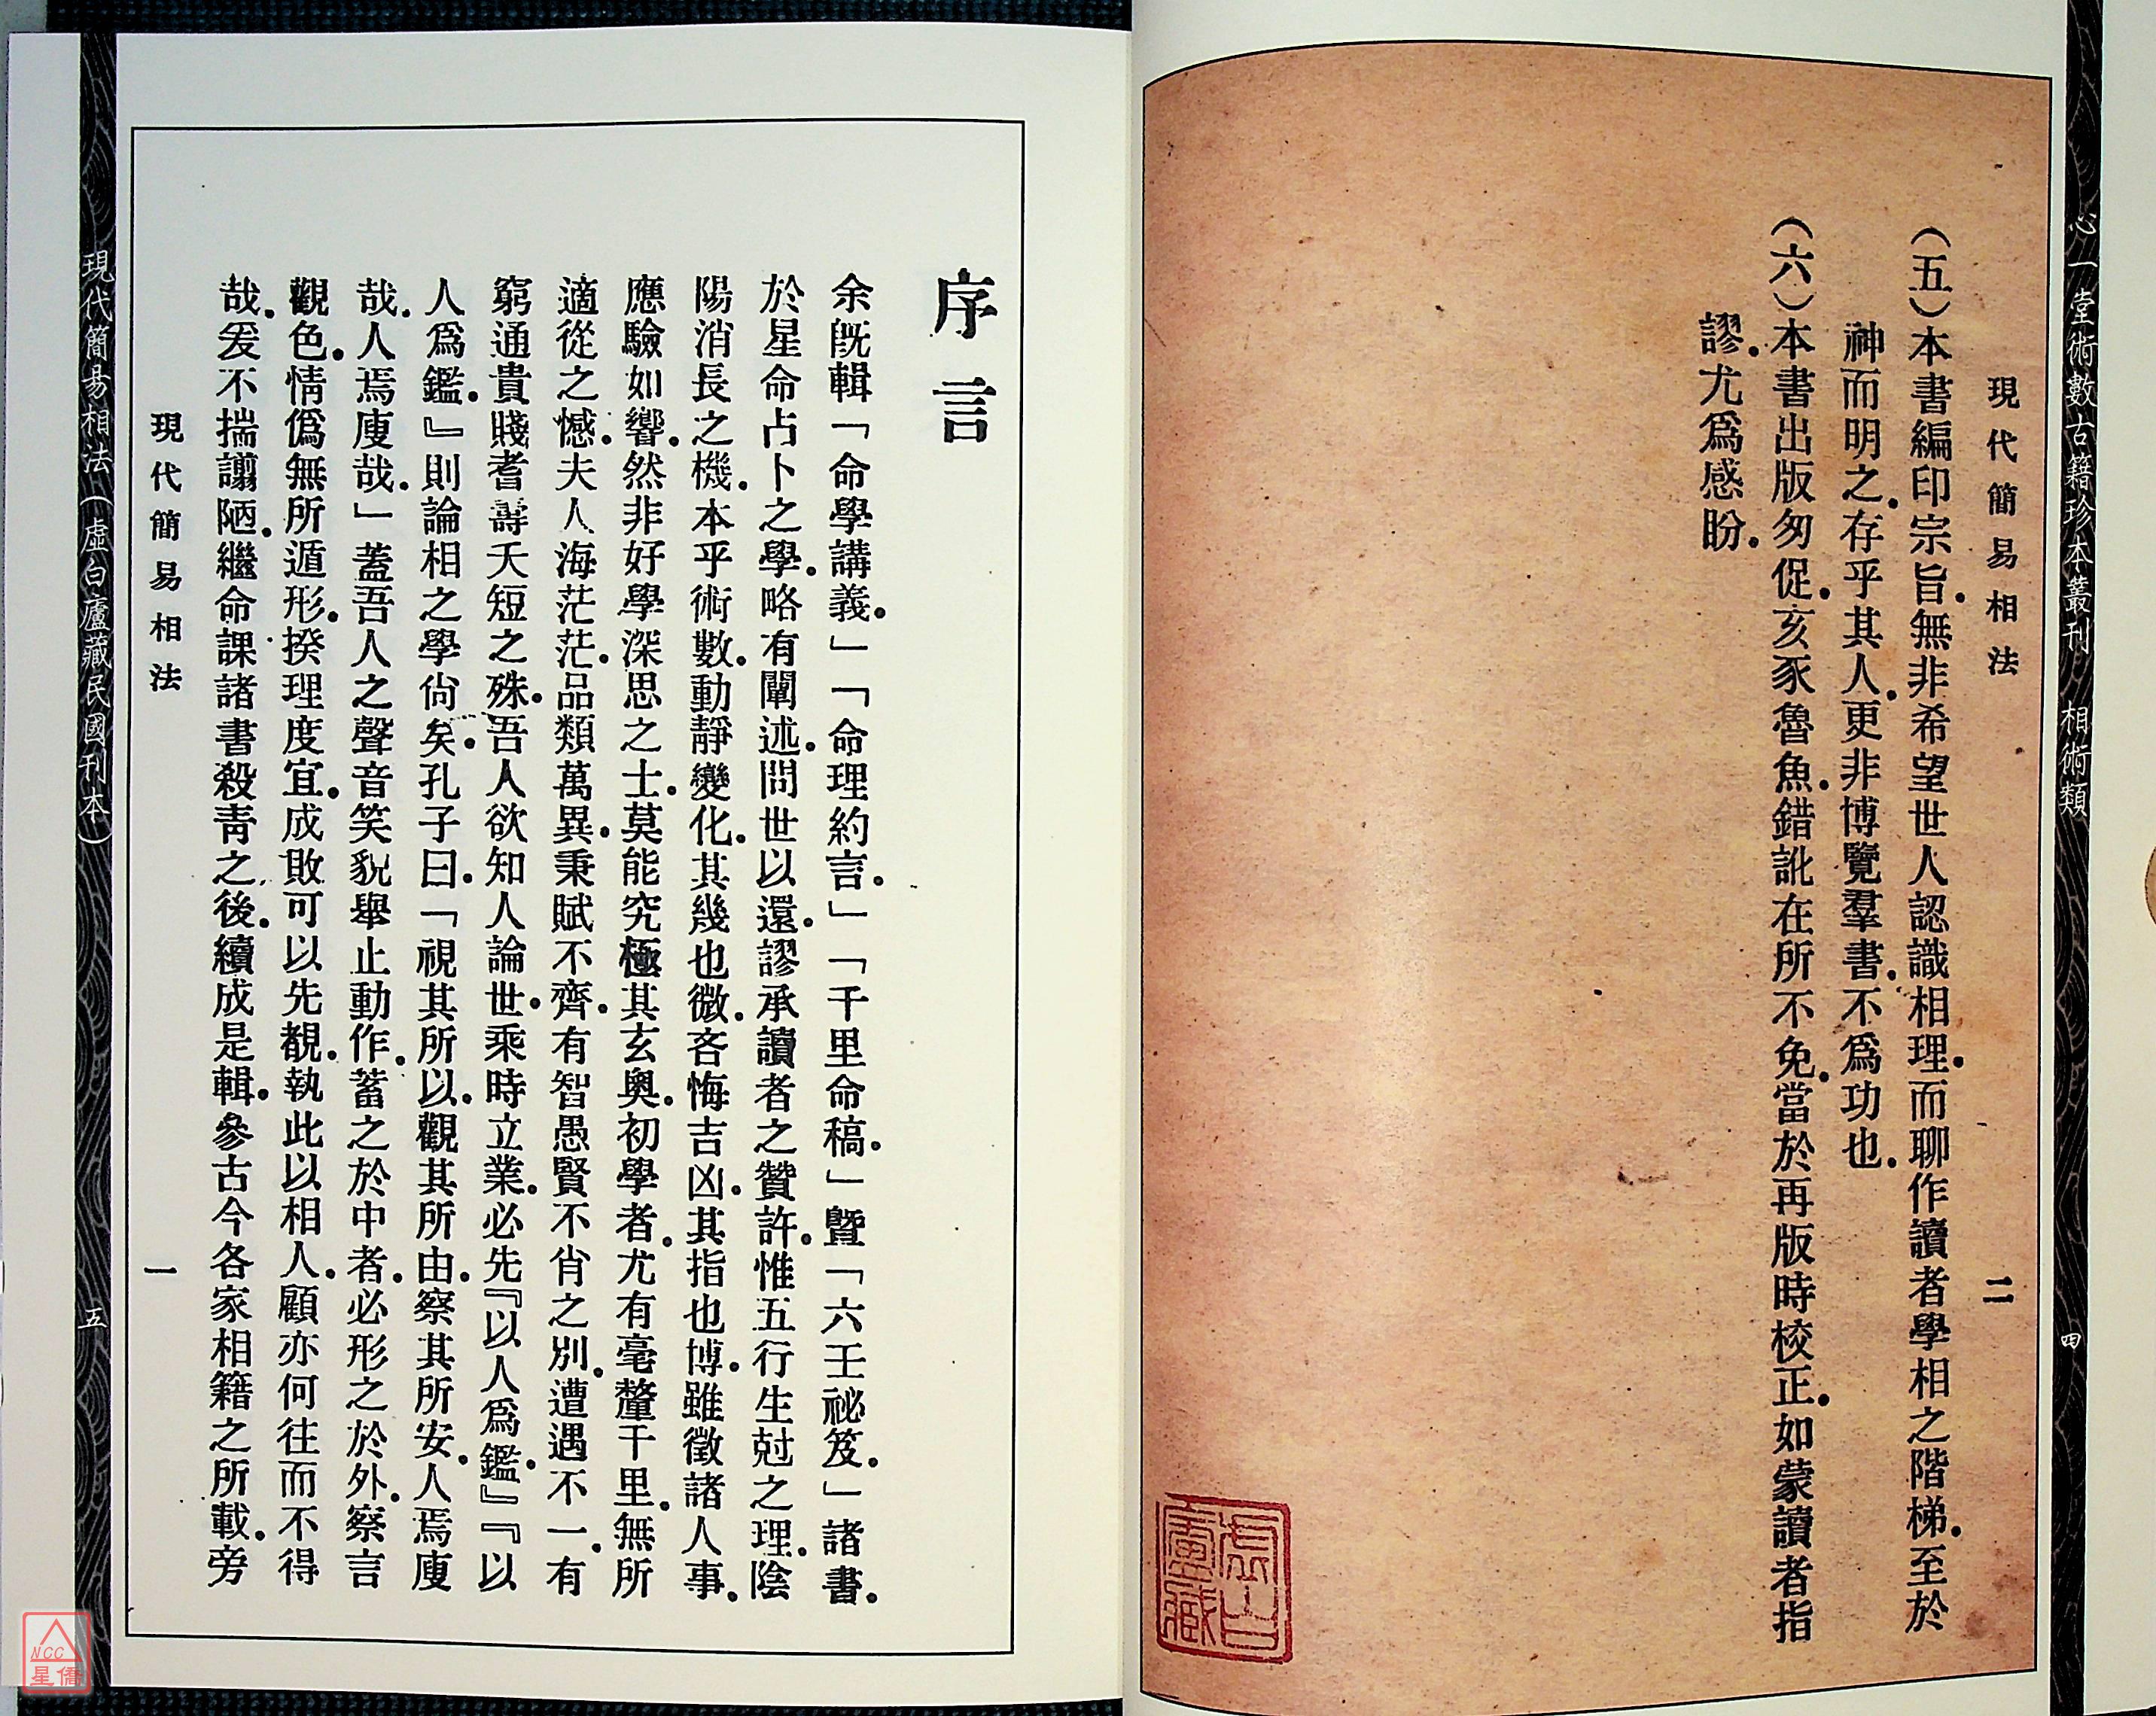 心一堂術數古籍珍本叢刊　相術類
四
現代簡易相法
二
（五）本書編印宗旨。無非希望世人認識相理。而聊作讀者學相之階梯。至於
神而明之。存乎其人。更非博覽羣書。不爲功也。
（六）本書出版匆促。亥豕魯魚。錯訛在所不免。當於再版時校正。如蒙讀者指
謬。尤爲感盼。
虛白廬藏
序言
余旣輯「命學講義。」「命理約言。」「千里命稿。」曁「六壬祕笈。」諸書。
於星命占卜之學。略有闡述。問世以還。謬承讀者之贊許。惟五行生尅之理。陰
陽消長之機。本乎術數。動靜變化。其幾也微。吝悔吉凶。其指也博。雖徵諸人事。
應驗如響。然非好學深思之士。莫能究極其玄奧。初學者。尤有毫釐千里。無所
適從之憾。夫人海茫茫。品類萬異。秉賦不齊。有智愚賢不肖之別。遭遇不一。有
窮通貴賤耆壽夭短之殊。吾人欲知人論世。乘時立業。必先『以人爲鑑。』『以
人爲鑑。』則論相之學尙矣。孔子曰。「視其所以。觀其所由。察其所安。人焉廋
哉。人焉廋哉。」蓋吾人之聲音笑貌舉止動作。蓄之於中者。必形之於外。察言
觀色。情僞無所遁形。揆理度宜。成敗可以先覩。執此以相人。顧亦何往而不得
哉。爰不揣譾陋。繼命課諸書殺靑之後。續成是輯。參古今各家相籍之所載。旁
現代簡易相法
一
現代簡易相法（虛白廬藏民國刊本）
五
NCC
星僑